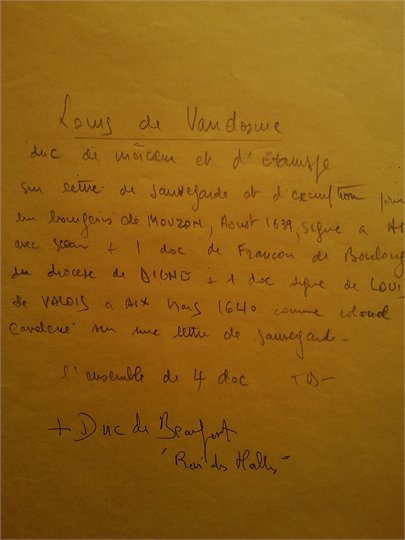 Louis de Vandosme
duc de mercœur et d'Etampe
sur lettre de sauvegarde et d'exemption pour
un bourgeois de MOUZON, Aoust 1639, signé a AI
avec sceau + 1 doc de Francois de Boulogne
du diocese de DIGNE + 1 doc signé de LOUIS
de VALOIS a AIX Mars 1640 comme colonel
Cavalerie sur une lettre de sauvegarde -
l'ensemble de 4 doc
+ Duc de Beaufort
"Roi des Halles"